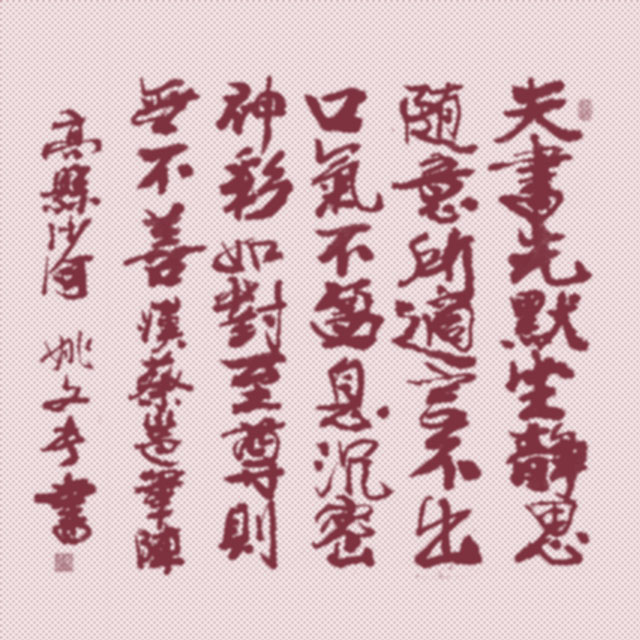 夫書先默坐靜思
隨意所適言不出
口氣不盈息沉密
神彩如對至尊則
無不善漢蔡邕筆陣
高縣沙河 姚文書